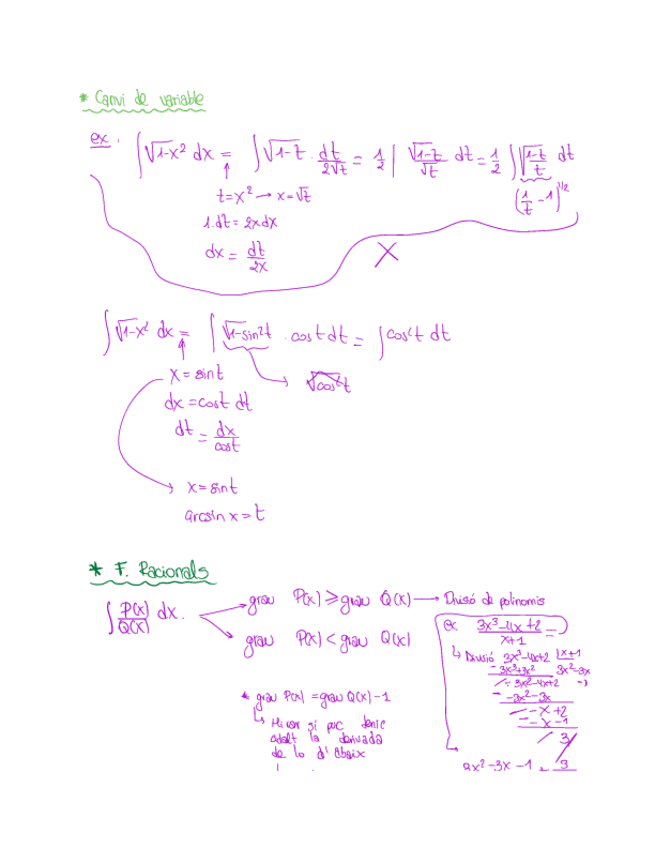 * Canvi de variable
ex. ∫√1-x² dx = ∫√1-t · dt/2√t = 1/2 ∫ √1-t/√t dt = 1/2 ∫√1-t/t dt
t=x² → x=√t
(1/t - 1)^1/2
1.dt = 2xdx
dx = dt/2x
X
∫√1-x² dx = ∫√1-sin²t · cost dt = ∫cos²t dt
x = sint
√cos²t
dx = cost dt
dt = dx/cost
x = sint
arcsin x = t
* F. Racionals
∫ P(x)/Q(x) dx.
grau P(x) ≥ grau Q(x) → Divisó de polinomis
grau P(x) < grau Q(x)
ex 3x³-4x+2/x+1 =
↳ Divisió 3x³-4x+2 |x+1
- 3x³+3x² 3x²-3x
-3x²-4x+2 -1
- -3x²-3x
-x+2
- -x-1
3
3x²-3x-1 + 3
* grau P(x) = grau Q(x)-1
↳ Mirar si puc
adalt la derivada
de lo d'abaix